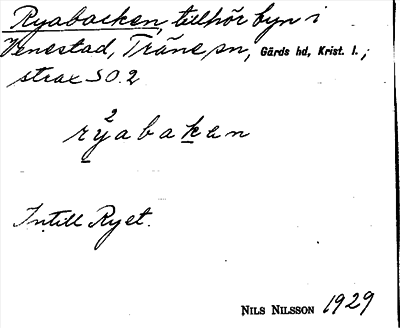 Ryabacken, tillhör byn i
Venestad, Träne sn, Gärds hd, Krist. l.,
strax SO.2
2
rÿabaken
Intill Ryet.
NILS NILSSON 1929